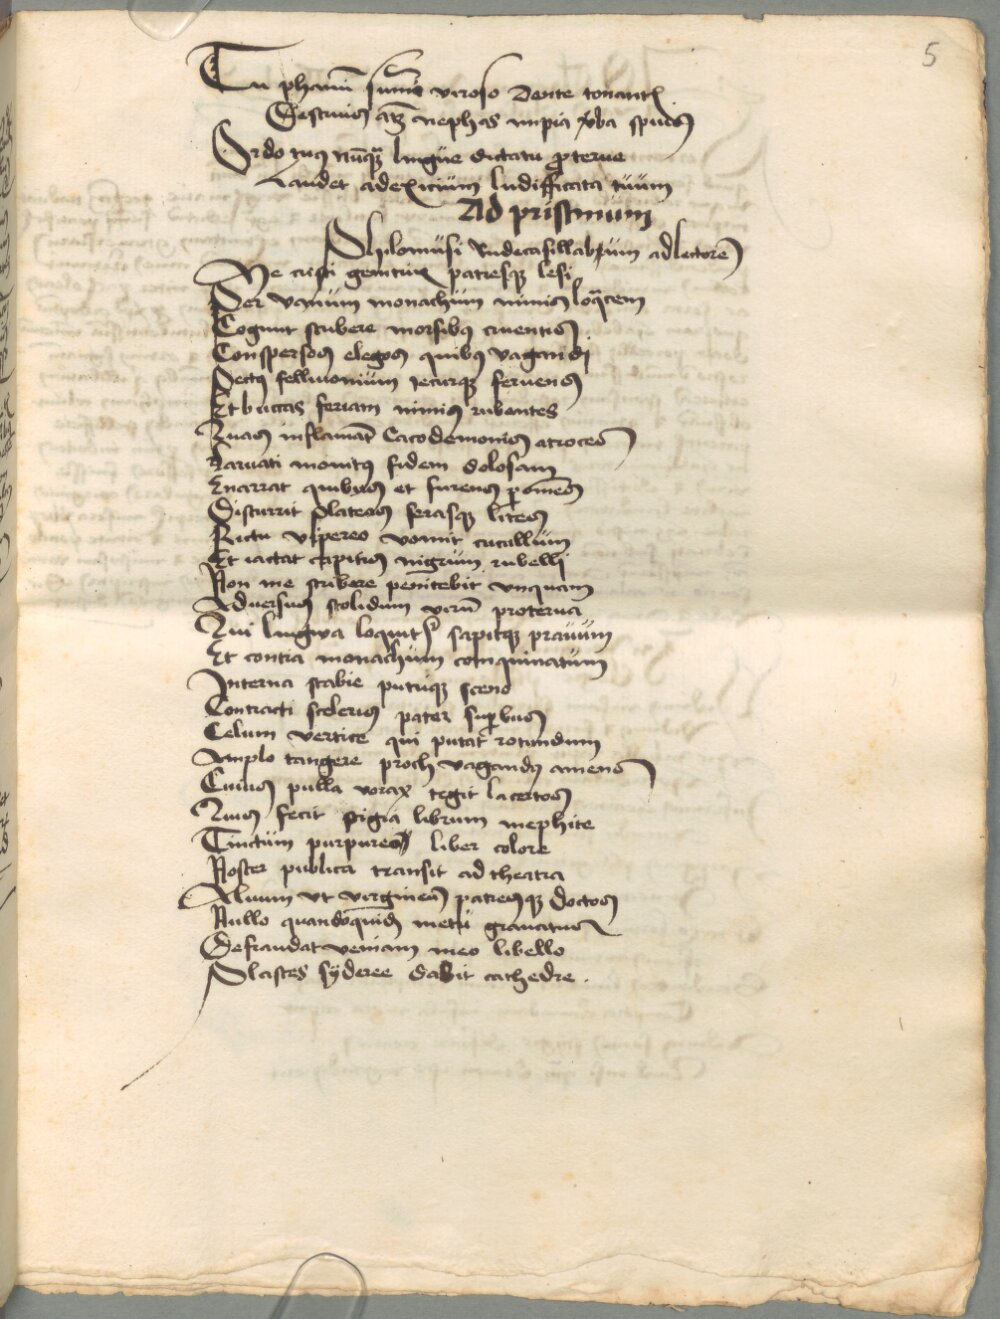 5
Tu phanū sūmi viroso dente tonantꝭ
Destruis atqꝫ nephas impia vba spuens
Ordo tuꝰ nūqꝫ lingue dictatu proterue
Laudet adexicium ludifficata tuum
Ad pristinum
Philomusi Endecasillabum ad lectorē
Me casti genitrix patresqꝫ lesi
Per vanum monachum nimis loqcem
Cogunt scribere morsibꝰ cruentis
Conspersos elegos quibꝰ vagandi
Pectꝰ felliuomum iecurqꝫ feruens
Et buccas feriam nimis rubentes
Quas inflamāt Cacodemonis atroces
Laruati monitꝰ fidem dolosam
Enarrat quibus et furens
Discurrit plateas ferasqꝫ lites
Rictu vipereo vomit cucullum
Et iactat capitis nigrum rubelli
Non me scribere penitebit vnquam
Aduersus stolidum virū proterua
Qui lingwa loquitꝰ sapitqꝫ prauum
Et contra monachum conquinatum
Interna scabie putriqꝫ sceno
Contracti sceleris pater supbus
Celum vertice qui putat rotundum
Amplo tangere proch vagandꝰ amens
Cuius pulla vorax tegit lacertos
Quos fecit stigia librum mephite
Tinctum purpureo liber colore
Noster publica transit ad theatra
Aluum vt virgineū patresqꝫ doctos
Nullo quandoquidē metu grauatus
Defraudat veniam meo libello
Plastes syderee dabit cathedre .